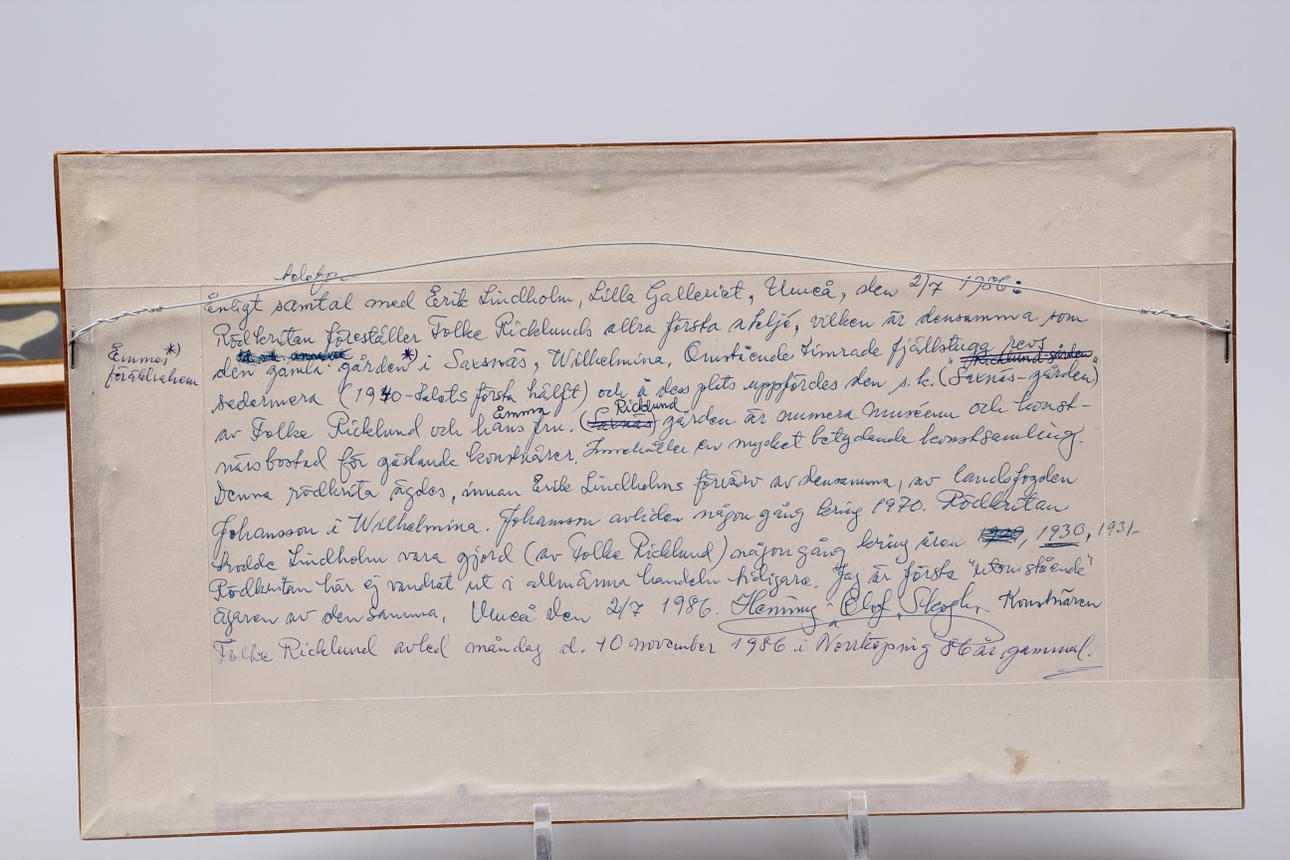 telefon
Enligt samtal med Erik Lindholm, Lilla Galleriet, Umeå, den 2/7 1986:
Rödkritan föreställer Folke Ricklunds allra första ateljé, vilken är densamma som
den gamla gården *) i Saxnäs, Wilhelmina. Omstående timrade fjällstuga revs
Emmas *)
föräldrahem
sedermera (1940-talets första hälft) och å dess plats uppfördes den s.k. (Saxnäs-gården)
Emma Ricklund
av Folke Ricklund och hans fru. gården är numera muséum och konst-
närsbostad för gästande konstnärer. Innehåller en mycket betydande konstsamling.
Denna rödkrita ägdes, innan Erik Lindholms förvärv av densamma, av landsfogden
Johansson i Wilhelmina. Johansson avliden någon gång kring 1970. Rödkritan
trodde Lindholm vara gjord (av Folke Ricklund) någon gång kring åren 1929, 1930, 1931-
Rödkritan har ej vandrat ut i allmänna handeln tidigare. Jag är första "utomstående"
ägaren av densamma. Umeå den 2/7 1986. Henning Olof Konstnären
Folke Ricklund avled måndag d. 10 november 1986 i Norrköping 86 år gammal.